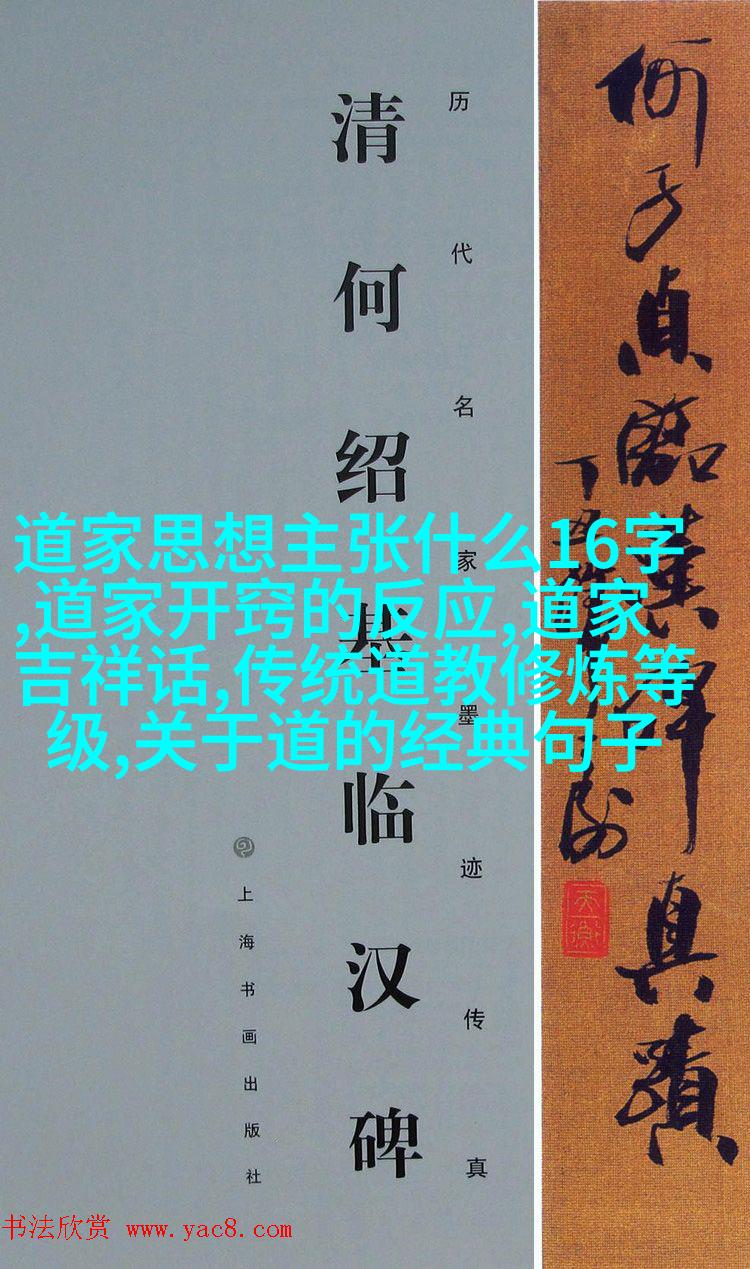 历代名家墨迹传真
清何绍基临汉碑
上海书画出版社
何子贞临汉碑真蹟
道家思想主张什么16字
,道家开窍的反应,道家
吉祥话,传统道教修炼等
级,关于道的经典句子
书法欣赏 www.yac8.com